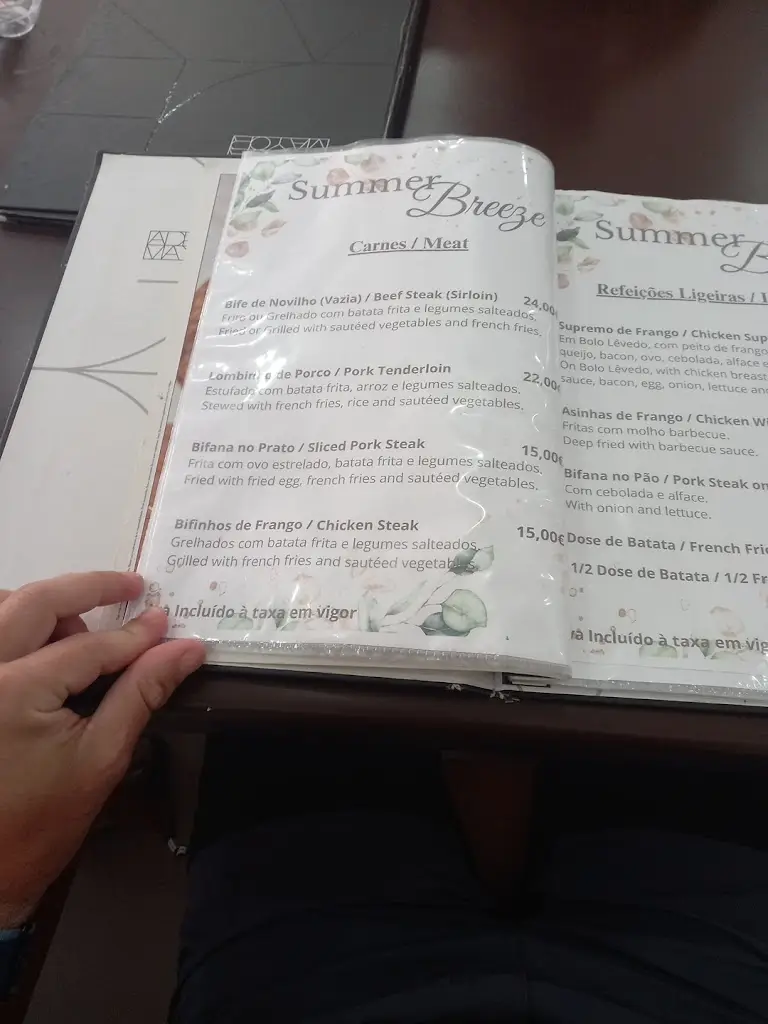 Summer
Breeze
Carnes / Meat
Bife de Novilho (Vazia) / Beef Steak (Sirloin) 24,00
Frito ou Grelhado com batata frita e legumes salteados.
Fried or Grilled with sautéed vegetables and french fries.
Lombinho de Porco / Pork Tenderloin 22,00€
Estufado com batata frita, arroz e legumes salteados.
Stewed with french fries, rice and sautéed vegetables.
Bifana no Prato / Sliced Pork Steak 15,00€
Frita com ovo estrelado, batata frita e legumes salteados.
Fried with fried egg, french fries and sautéed vegetables.
Bifinhos de Frango / Chicken Steak 15,00€
Grelhados com batata frita e legumes salteados
Grilled with french fries and sautéed vegetables.
à Incluído à taxa em vigor
Summer
B
Refeições Ligeiras / L
Supremo de Frango / Chicken Sup
Em Bolo Lêvedo, com peito de frango
queijo, bacon, ovo, cebolada, alface e
On Bolo Lêvedo, with chicken breast
sauce, bacon, egg, onion, lettuce and
Asinhas de Frango / Chicken Wi
Fritas com molho barbecue.
Deep fried with barbecue sauce.
Bifana no Pão / Pork Steak on
Com cebolada e alface.
With onion and lettuce.
Dose de Batata / French Frie
1/2 Dose de Batata / 1/2 Fr
và Incluído à taxa em vig